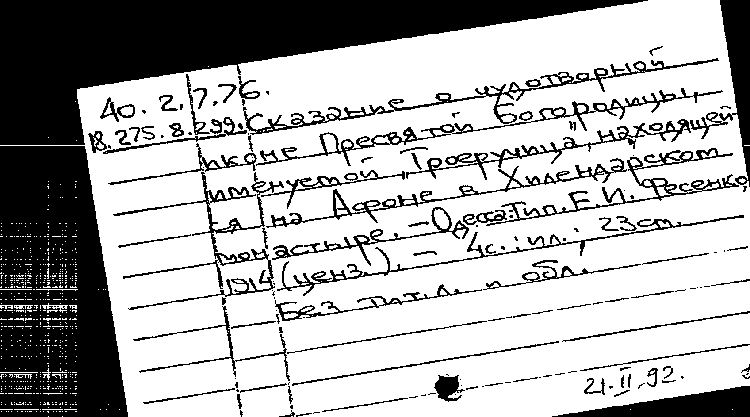 40. 2.7.76.
18.275.8.299. Сказание о чудотворной
иконе Пресвятой Богородицы,
именуемой "Троеручица", находящей-
ся на Афоне в Хилендарском
монастыре. - Одесса: Тип. Е.И. Фесенко,
1914 (ценз.). - 4с.: ил.; 23см.
Без тит.л. и обл.
21.II.92.